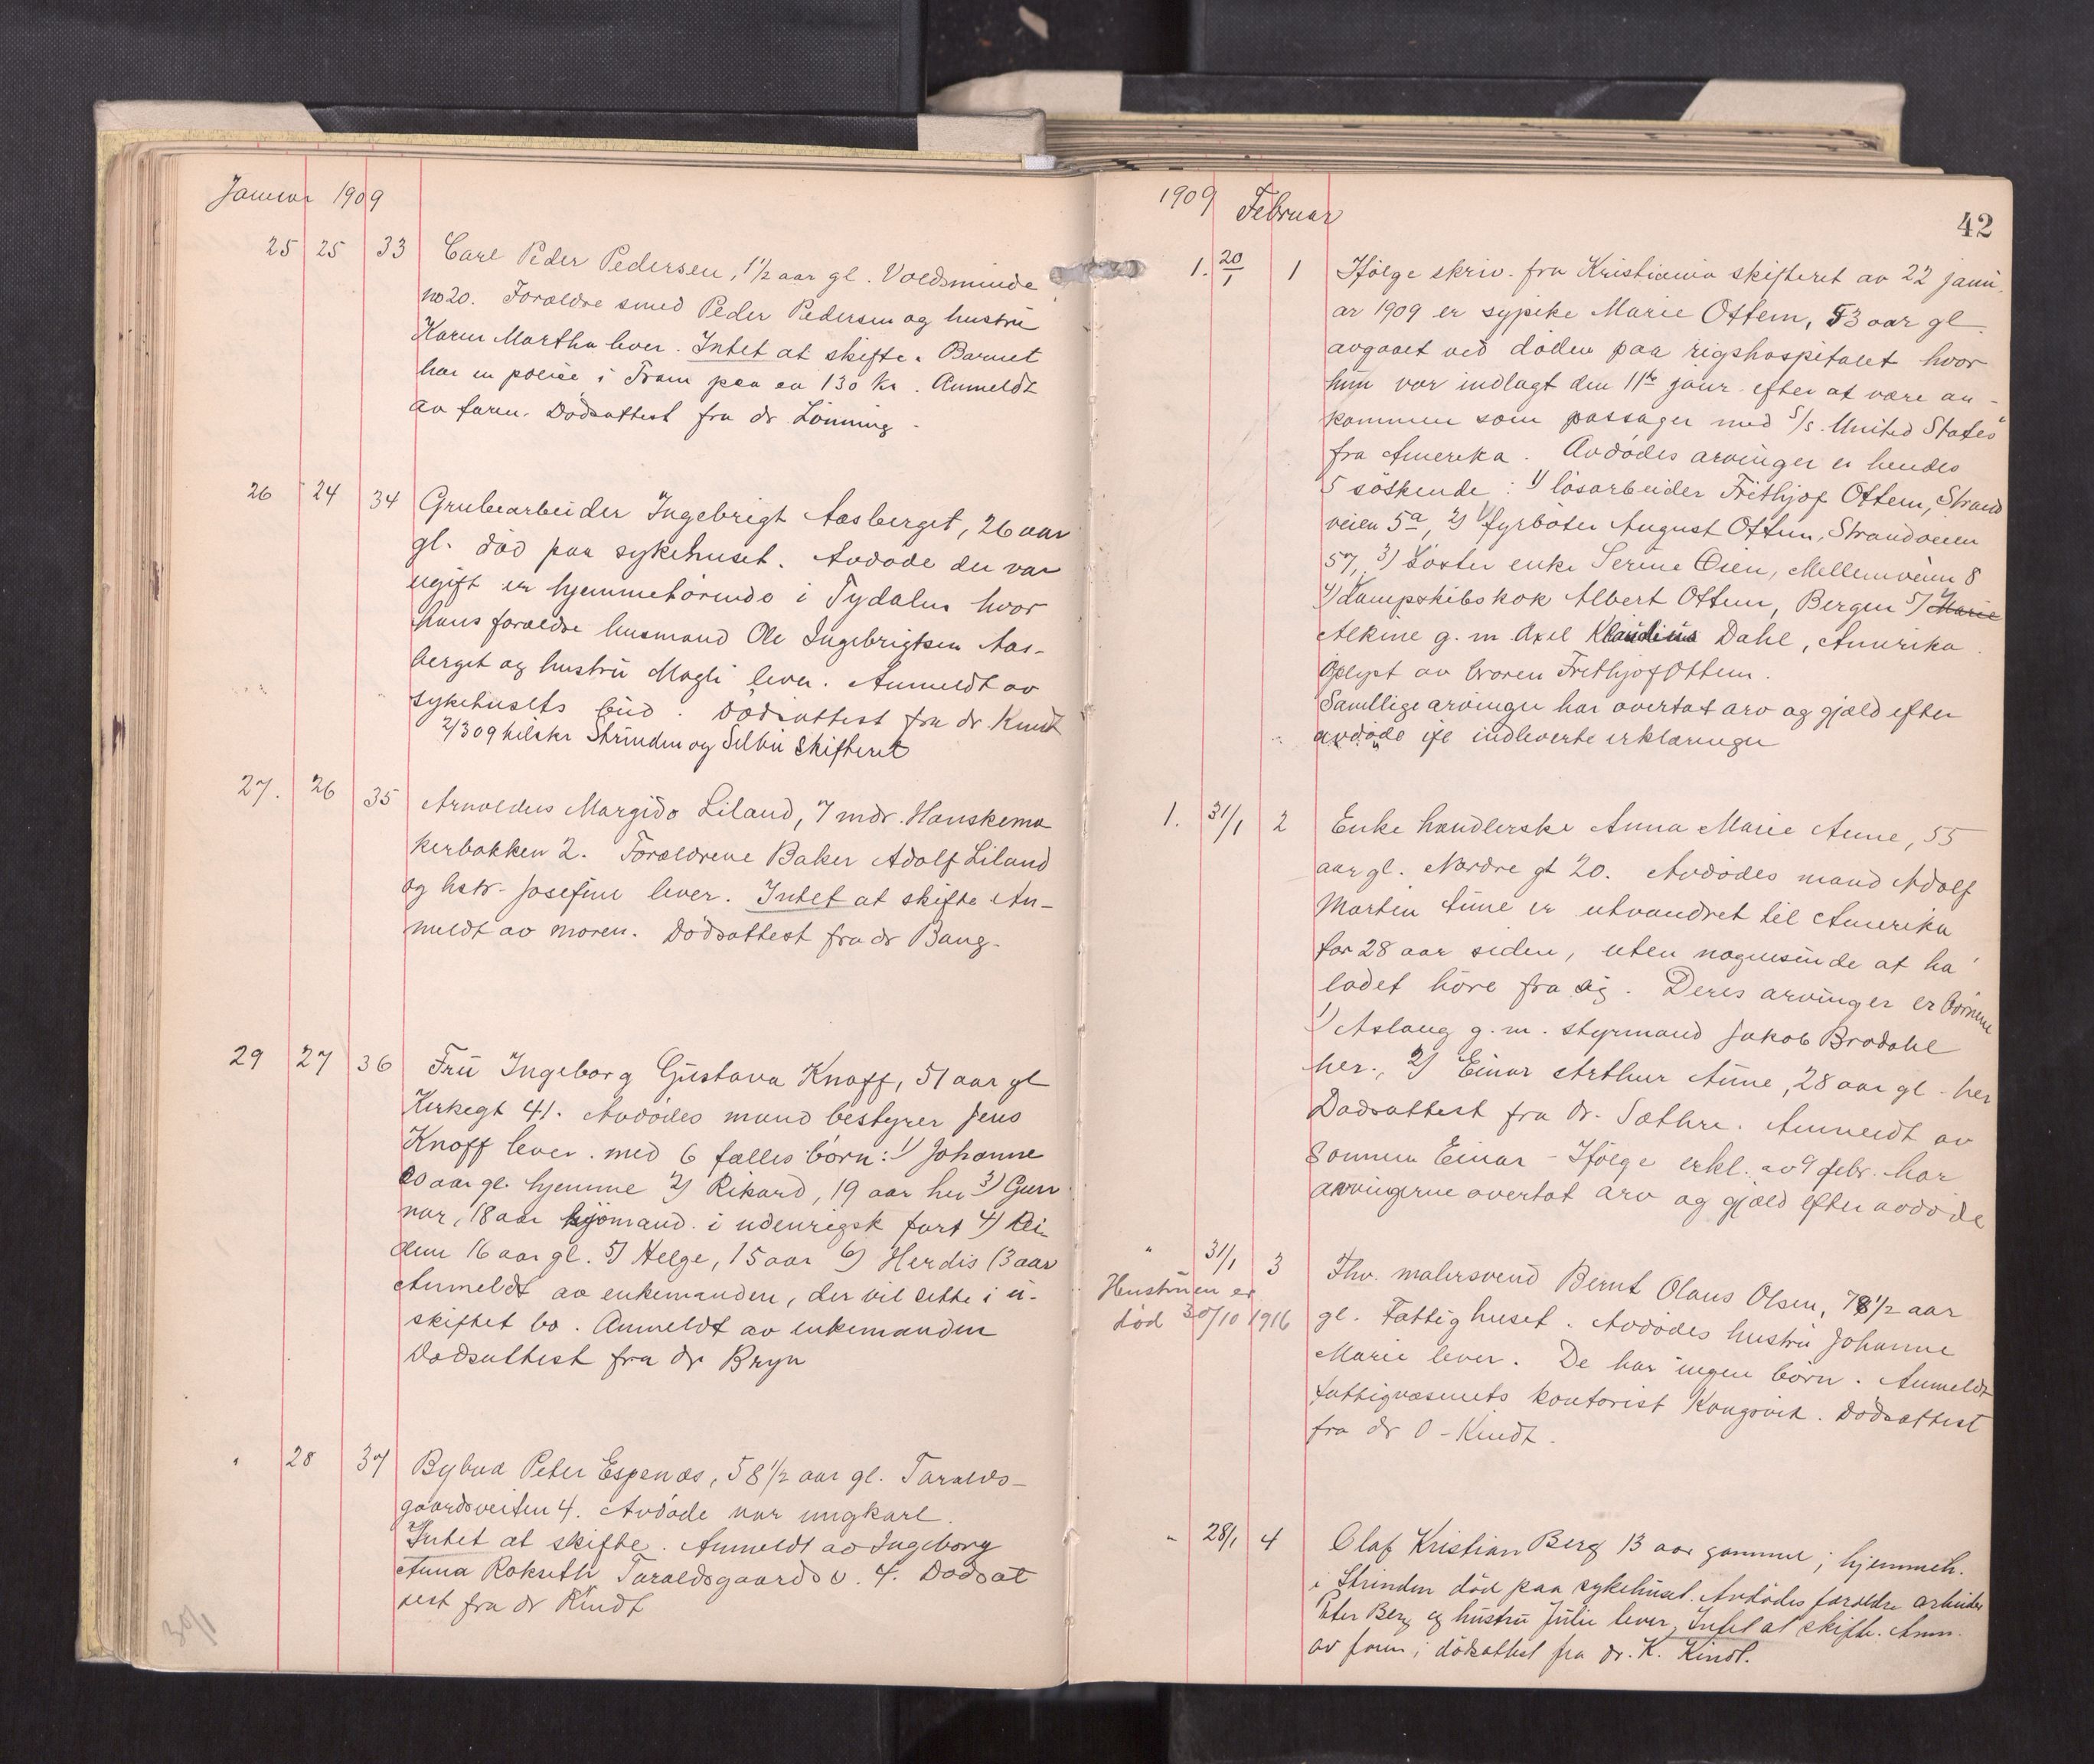 Januar 1909
25 25 33 Carl Peder Pedersen, 1½ aar gl. Voldsminde
no 20. Forældre smed Peder Pedersen og hustru
Karen Martha lever. Intet at skifte. Barnet
har en police i Fram paa ca 130 kr. Anmeldt
av faren. Dödsattest fra dr. Lönning.
26 24 34 Grubearbeider Ingebrigt Aasberget, 26 aar
gl. död paa sykehuset. Avdöde der var
ugift er hjemmehörende i Tydalen hvor
hans forældre husmand Ole Ingebrigtsen Aas-
berget og hustru Magli lever. Anmeldt av
sykehusets bud. Dödsattest fra dr. Kindt
2/3 09 tilskr Strinden og Selbu skifteret
27. 26 35 Arnoldus Margido Liland, 7 mdr. Hanskema
kerbakken 2. Forældrene Baker Adolf Liland
og hstr. Josefine lever. Intet at skifte An-
meldt av moren. Dödsattest fra dr Bang.
29 27 36 Fru Ingeborg Gustava Knoff, 51 aar gl
Kirkegt 41. Avdödes mand bestyrer Jens
Knoff lever. med 6 fælles börn: 1) Johanne
20 aar gl. hjemme 2) Rikard, 19 aar her 3) Gun
nar, 18 aar sjömand i udenrigsk fart 4)
16 aar gl. 5) Helge, 15 aar 6) Herdis 13 aar
Anmeldt av enkemanden, der vil sitte i u-
skiftet bo. Anmeldt av enkemanden
Dödsattest fra dr Bryn
" 28 37 Bybud Peter Espenæs, 58½ aar gl. Taralds-
gaardsveiten 4. Avdöde var ungkarl.
Intet at skifte. Anmeldt av Ingeborg
Anna Rokseth Taraldsgaardsv. 4. Dödsat
test fra dr Kindt
30/1
1909 Februar
42
1. 20/1 1 Ifölge skriv. fra Kristiania skifteret av 22 janu-
ar 1909 er sypike Marie Ottem, 53 aar gl.
avgaaet ved döden paa rigshospitalet hvor
hun var indlagt den 11te janr. efter at være an-
kommen som passager med S/S. United States"
fra Amerika. Avdödes arvinger er hendes
5 söskende: 1) lösarbeider Frithjof Ottem, Strand
veien 5a, 2) fyrböter August Ottem, Strandveien
57, 3) Söster enke Serine Öien, Mellemveien 8
4) Dampskibskok Albert Ottem, Bergen 5) Marie
Alkine g. m Axel Klaudius Dahl, Amerika.
Oplyst av broren Frithjof Ottem.
Samtlige arvinger har overtat arv og gjæld efter
avdöde ifl indleverte erklæringer
1. 31/1 2 Enke handlerske Anna Marie Aune, 55
aar gl. Nordre gt 20. Avdödes mand Adolf
Martin Aune er utvandret til Amerika
for 28 aar siden, uten nogensinde at ha
ladet höre fra sig. Deres arvinger er börnene
1) Aslaug g. m. styrmand Jakob Brodahl
her., 2) Einar Arthur Aune, 28 aar gl. her
Dödsattest fra dr. Sæthre. Anmeldt av
Sönnen Einar - Ifölge erkl. av 9 febr. har
arvingerne overtat arv og gjæld efter avdöde
" 31/1 3 Fhv. malersvend Bernt Olaus Olsen, 78½ aar
gl. Fattighuset. Avdödes hustru Johanne
Marie lever. De har ingen börn. Anmeldt
fattigvæsenets kontorist Kongsvik. Dödsattest
fra dr O. Kindt.
Hustruen er
död 30/10 1916
" 28/1 4 Olaf Kristian Berg 13 aar gammel; hjemmeh.
i Strinden död paa sykehuset. Avdödes forældre arbeider
Peter Berg og hustru Julie lever, Intet at skifte. Anm.
av faren; dödsattest fra dr. K. Kindt.